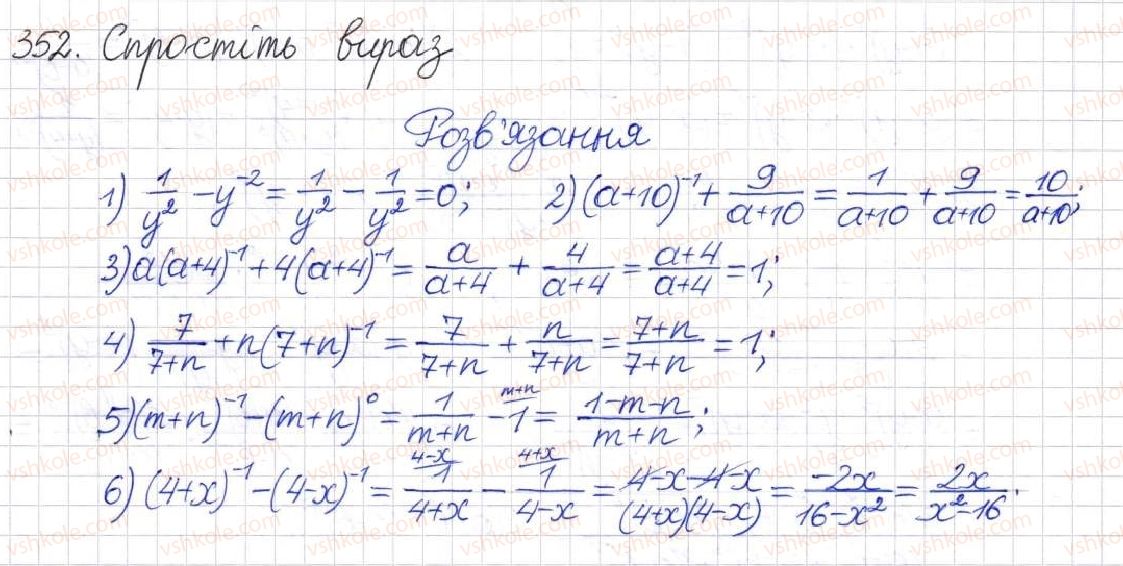 352. Спростіть вираз
Розв'язання
1) 1/y² - y⁻² = 1/y² - 1/y² = 0; 2) (a+10)⁻¹ + 9/(a+10) = 1/(a+10) + 9/(a+10) = 10/(a+10);
3) a(a+4)⁻¹ + 4(a+4)⁻¹ = a/(a+4) + 4/(a+4) = (a+4)/(a+4) = 1;
4) 7/(7+n) + n(7+n)⁻¹ = 7/(7+n) + n/(7+n) = (7+n)/(7+n) = 1;
5) (m+n)⁻¹ - (m+n)⁰ = 1/(m+n) - 1 (m+n) = (1-m-n)/(m+n);
6) (4+x)⁻¹ - (4-x)⁻¹ = 1 (4-x)/(4+x) - 1 (4+x)/(4-x) = (4-x-4-x)/((4+x)(4-x)) = -2x/(16-x²) = 2x/(x²-16).
vshkole.com